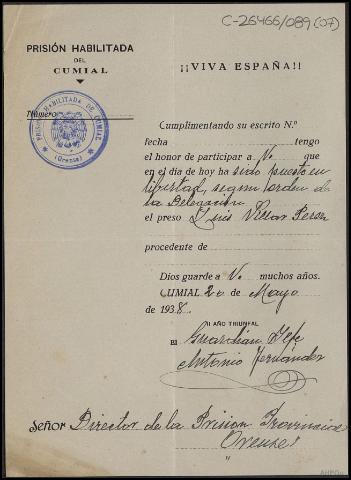 C-26466/089(07)
PRISIÓN HABILITADA
DEL
CUMIAL
¡¡VIVA ESPAÑA!!
Número
PRISION HABILITADA DE CUMIAL
(Orense)
Cumplimentando su escrito N.º
fecha tengo
el honor de participar a V. que
en el día de hoy ha sido puesto en
libertad, segun orden de
la Delegación
el preso Luis
procedente de
Dios guarde a V. muchos años.
CUMIAL 20 de Mayo
de 1938.
II AÑO TRIUNFAL
El Guardián Jefe
Antonio Fernández
SEÑOR Director de la Prisión Provincial
Orense